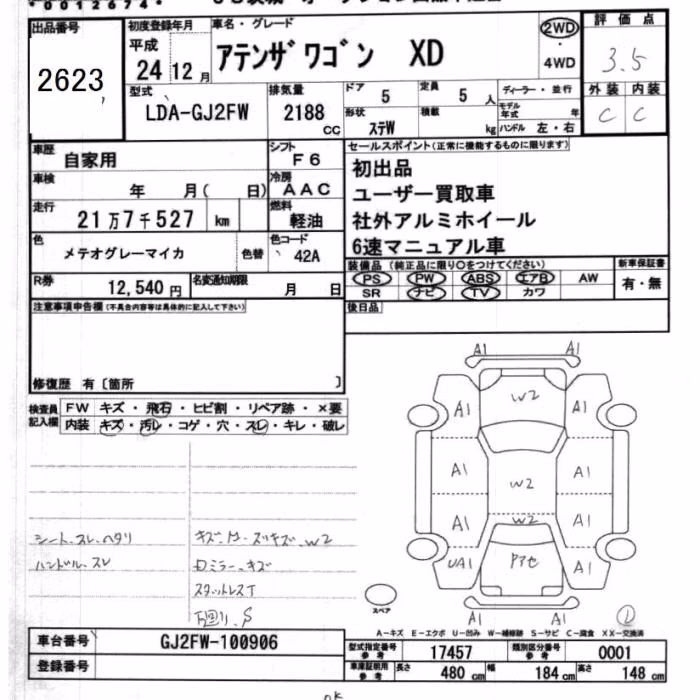 *00012674*
出品番号 初度登録年月 車名・グレード 2WD 評価点
2623 平成 24 12月 アテンザワゴン XD ・ 4WD 3.5
型式 排気量 ドア 5 定員 5人 ディーラー・並行 外装 内装
LDA-GJ2FW 2188 CC 形状 ステW 積載 kg モデル年式 年 C C
ハンドル 左・右
車歴 自家用 シフト F6 セールスポイント(正常に機能するものに限ります)
車検 年 月( 日) 冷房 AAC 初出品
走行 21万7千527 km 燃料 軽油 ユーザー買取車
社外アルミホイール
色 メテオグレーマイカ 色替 色コード 42A 6速マニュアル車
装備品(純正品に限り○をつけてください) 新車保証書
R券 12,540円 名変通知期限 月 日 PS PW ABS エアB AW 有・無
SR ナビ TV カワ
注意事項申告欄(不具合内容等は具体的に記入して下さい) 後日品
修復歴 有〔箇所 〕
検査員記入欄 FW キズ・飛石・ヒビ割・リペア跡・×要
内装 キズ・汚レ・コゲ・穴・スレ・キレ・破レ
A1 A1
A1 W2 A1
A1 W2 A1
A1 W2 A1
UA1 A1
A1 A1
シート、スレ、ヘタリ
ハンドル、スレ
Dミラー、キズ
スタットレスT
スペア
A-キズ E-エクボ U-凹み W-補修跡 S-サビ C-腐食 XX-交換済
車台番号 GJ2FW-100906 型式指定番号 参考 17457 類別区分番号 参考 0001
登録番号 車庫証明用 参考 長さ 480 cm 幅 184 cm 高さ 148 cm